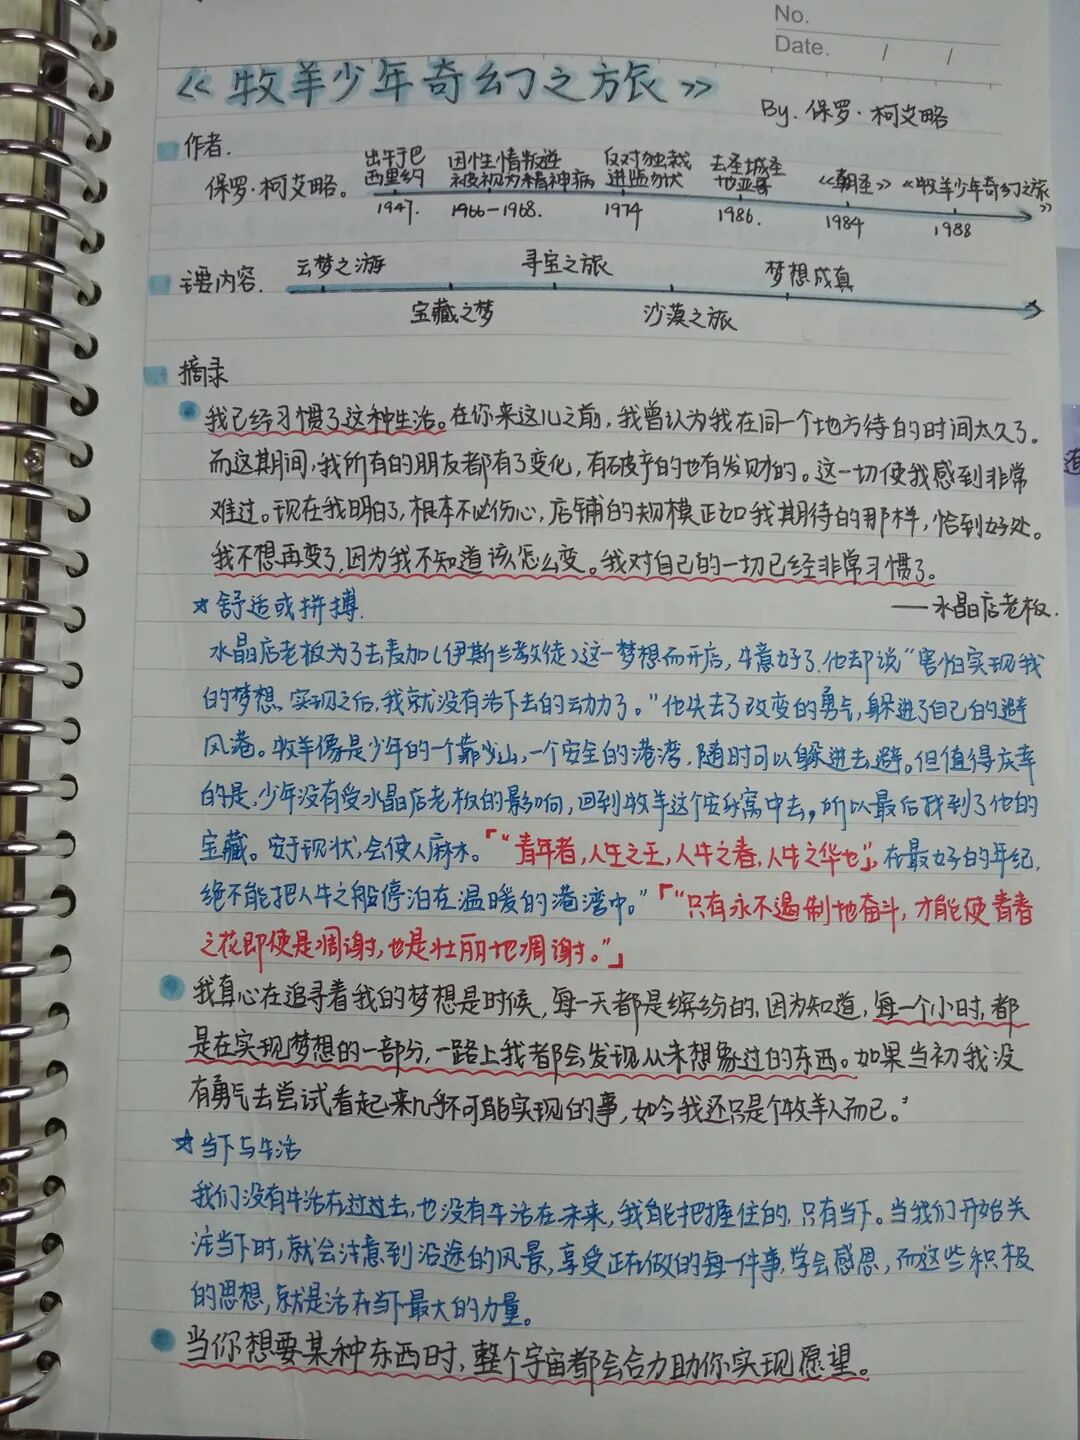 No.
Date. / /
《牧羊少年奇幻之旅》
By. 保罗·柯艾略
作者.
保罗·柯艾略。
出生于巴西里约
1947.
因性情叛逆被视为精神病
1966-1968.
反对独裁进监狱
1974
去圣城圣地亚哥
1986.
《朝圣》
1984
《牧羊少年奇幻之旅》
1988
主要内容.
云梦之游
宝藏之梦
寻宝之旅
沙漠之旅
梦想成真
摘录
我已经习惯了这种生活。在你来这儿之前,我曾认为我在同一个地方待的时间太久了。
而这期间,我所有的朋友都有了变化,有破产的也有发财的。这一切使我感到非常
难过。现在我明白了,根本不必伤心,店铺的规模正如我期待的那样,恰到好处。
我不想再变了,因为我不知道该怎么变。我对自己的一切已经非常习惯了。
——水晶店老板.
☆舒适或拼搏.
水晶店老板为了去麦加(伊斯兰教徒)这一梦想而开店,生意好了.他却说“害怕实现我
的梦想,实现之后,我就没有活下去的动力了。”他失去了改变的勇气,躲进了自己的避
风港。牧羊像是少年的一个靠山,一个安全的港湾,随时可以躲进去避。但值得庆幸
的是,少年没有受水晶店老板的影响,回到牧羊这个安乐窝中去,所以最后找到了他的
宝藏。安于现状,会使人麻木。「“青年者,人生之王,人生之春,人生之华也”」,在最好的年纪,
绝不能把人生之船停泊在温暖的港湾中。”「“只有永不遏制地奋斗,才能使青春
之花即使是凋谢,也是壮丽地凋谢。”」
我真心在追寻着我的梦想是时候,每一天都是缤纷的,因为知道,每一个小时,都
是在实现梦想的一部分,一路上我都会发现从未想象过的东西。如果当初我没
有勇气去尝试看起来几乎不可能实现的事,如今我还只是个牧羊人而已。’
☆当下与生活
我们没有生活在过过去,也没有生活在未来,我能把握住的,只有当下。当我们开始关
注当下时,就会注意到沿途的风景,享受正在做的每一件事,学会感恩,而这些积极
的思想,就是活在当下最大的力量。
当你想要某种东西时,整个宇宙都会合力助你实现愿望。